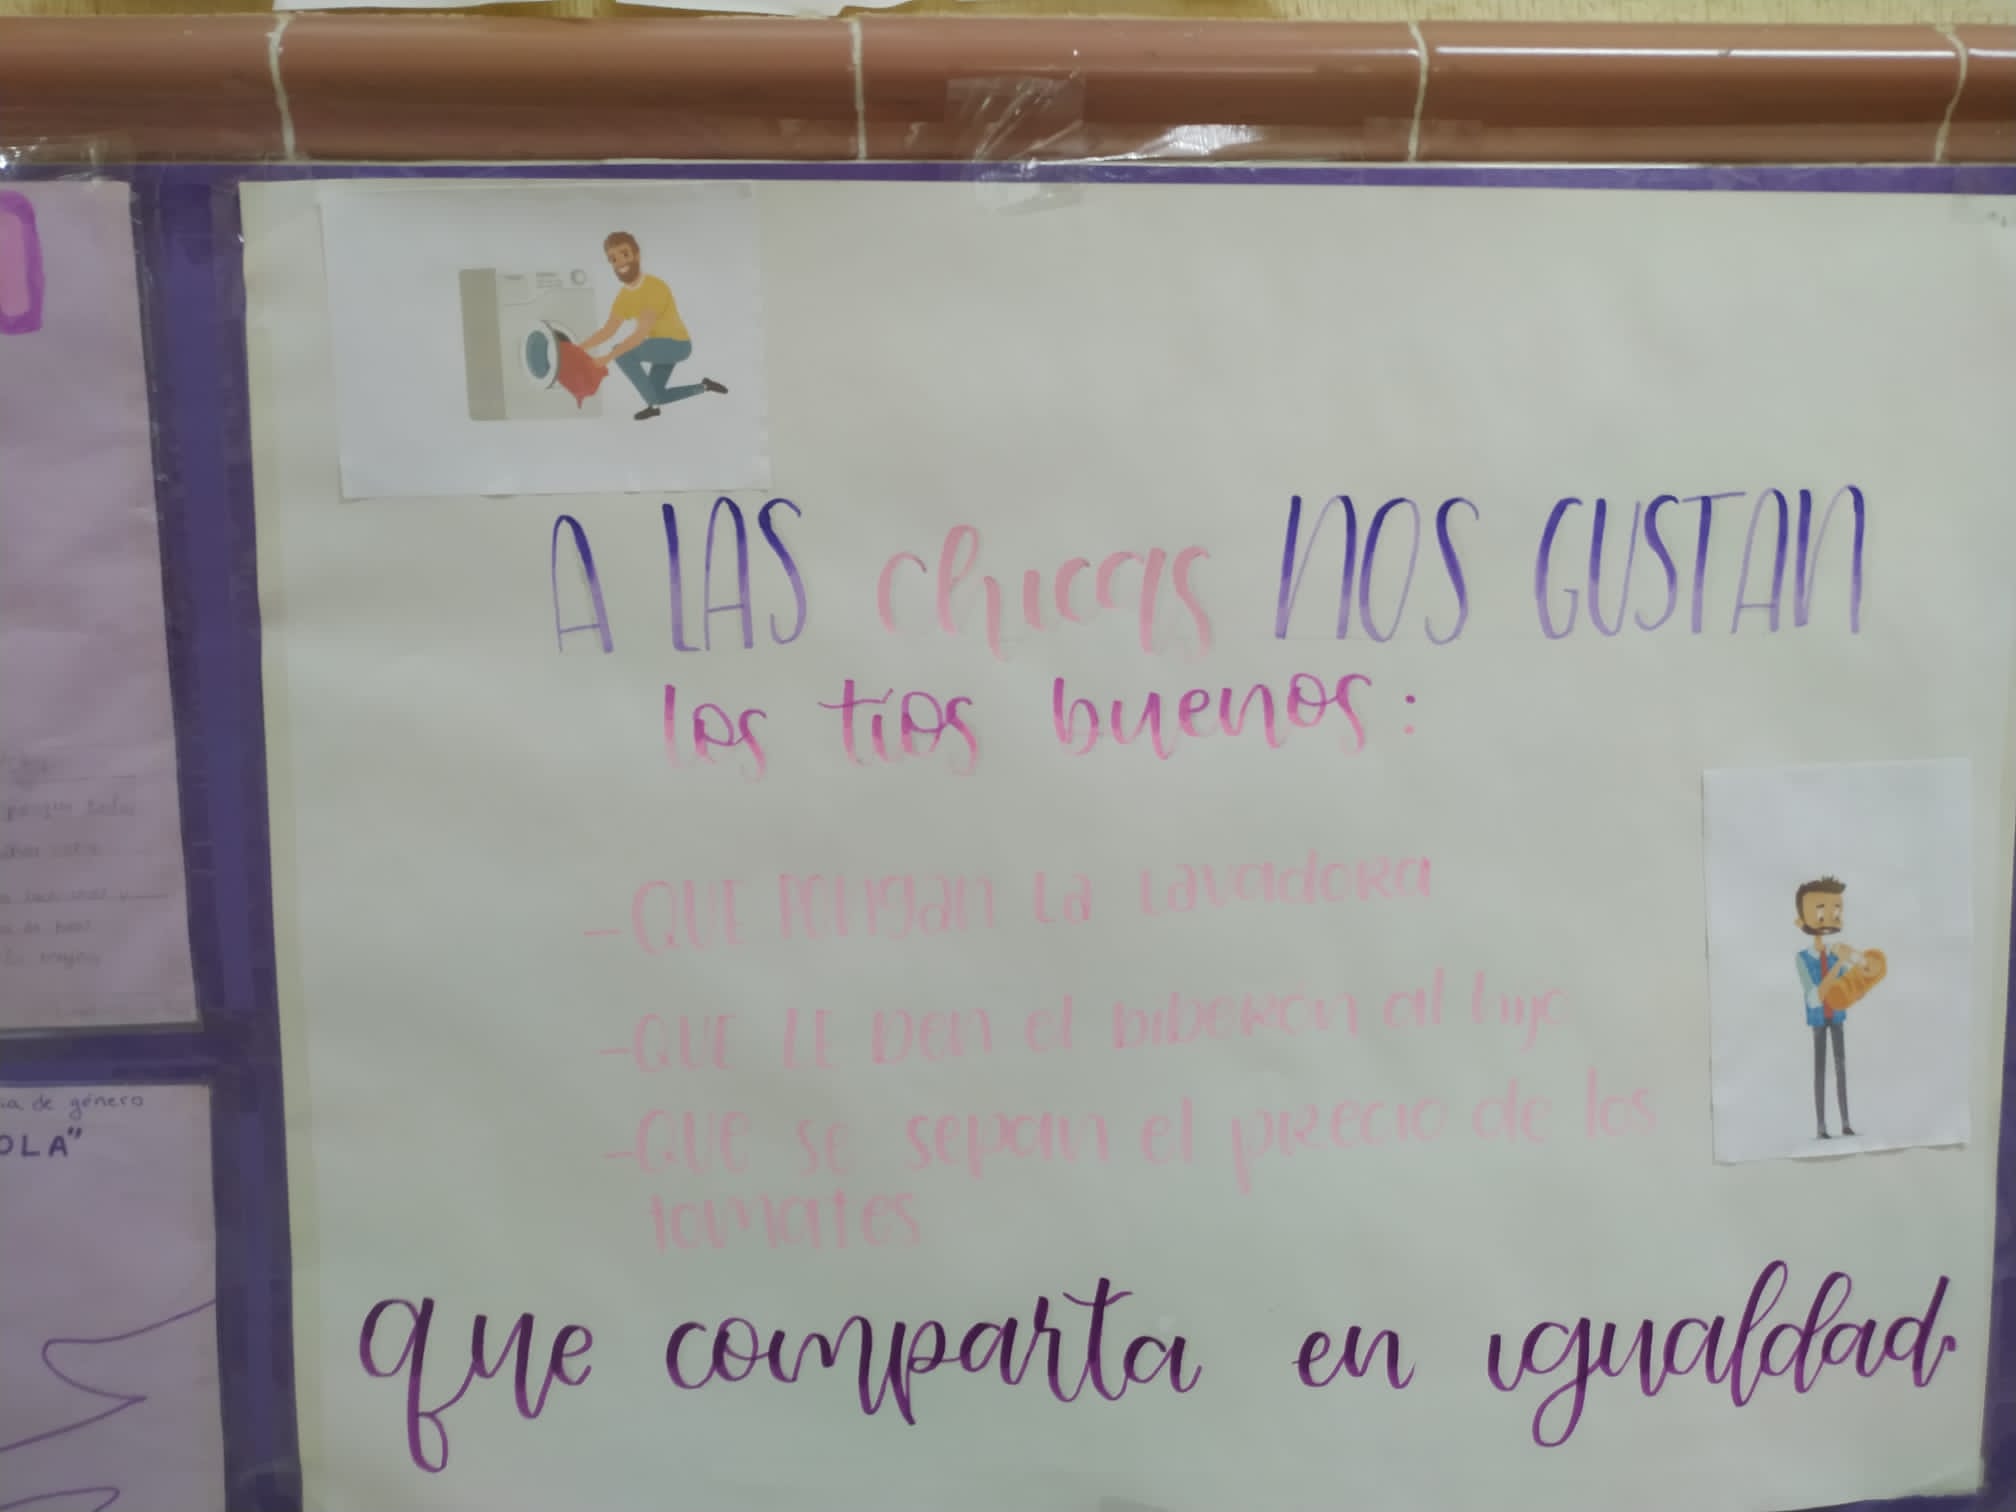 A LAS chicas NOS GUSTAN
los tíos buenos:
- QUE PONgan La LavadoRa
- QUE LE Den el biberón al hijo
- QUE se sepan el pRecio de los
tomates
que comparta en igualdad.
de género
OLA"